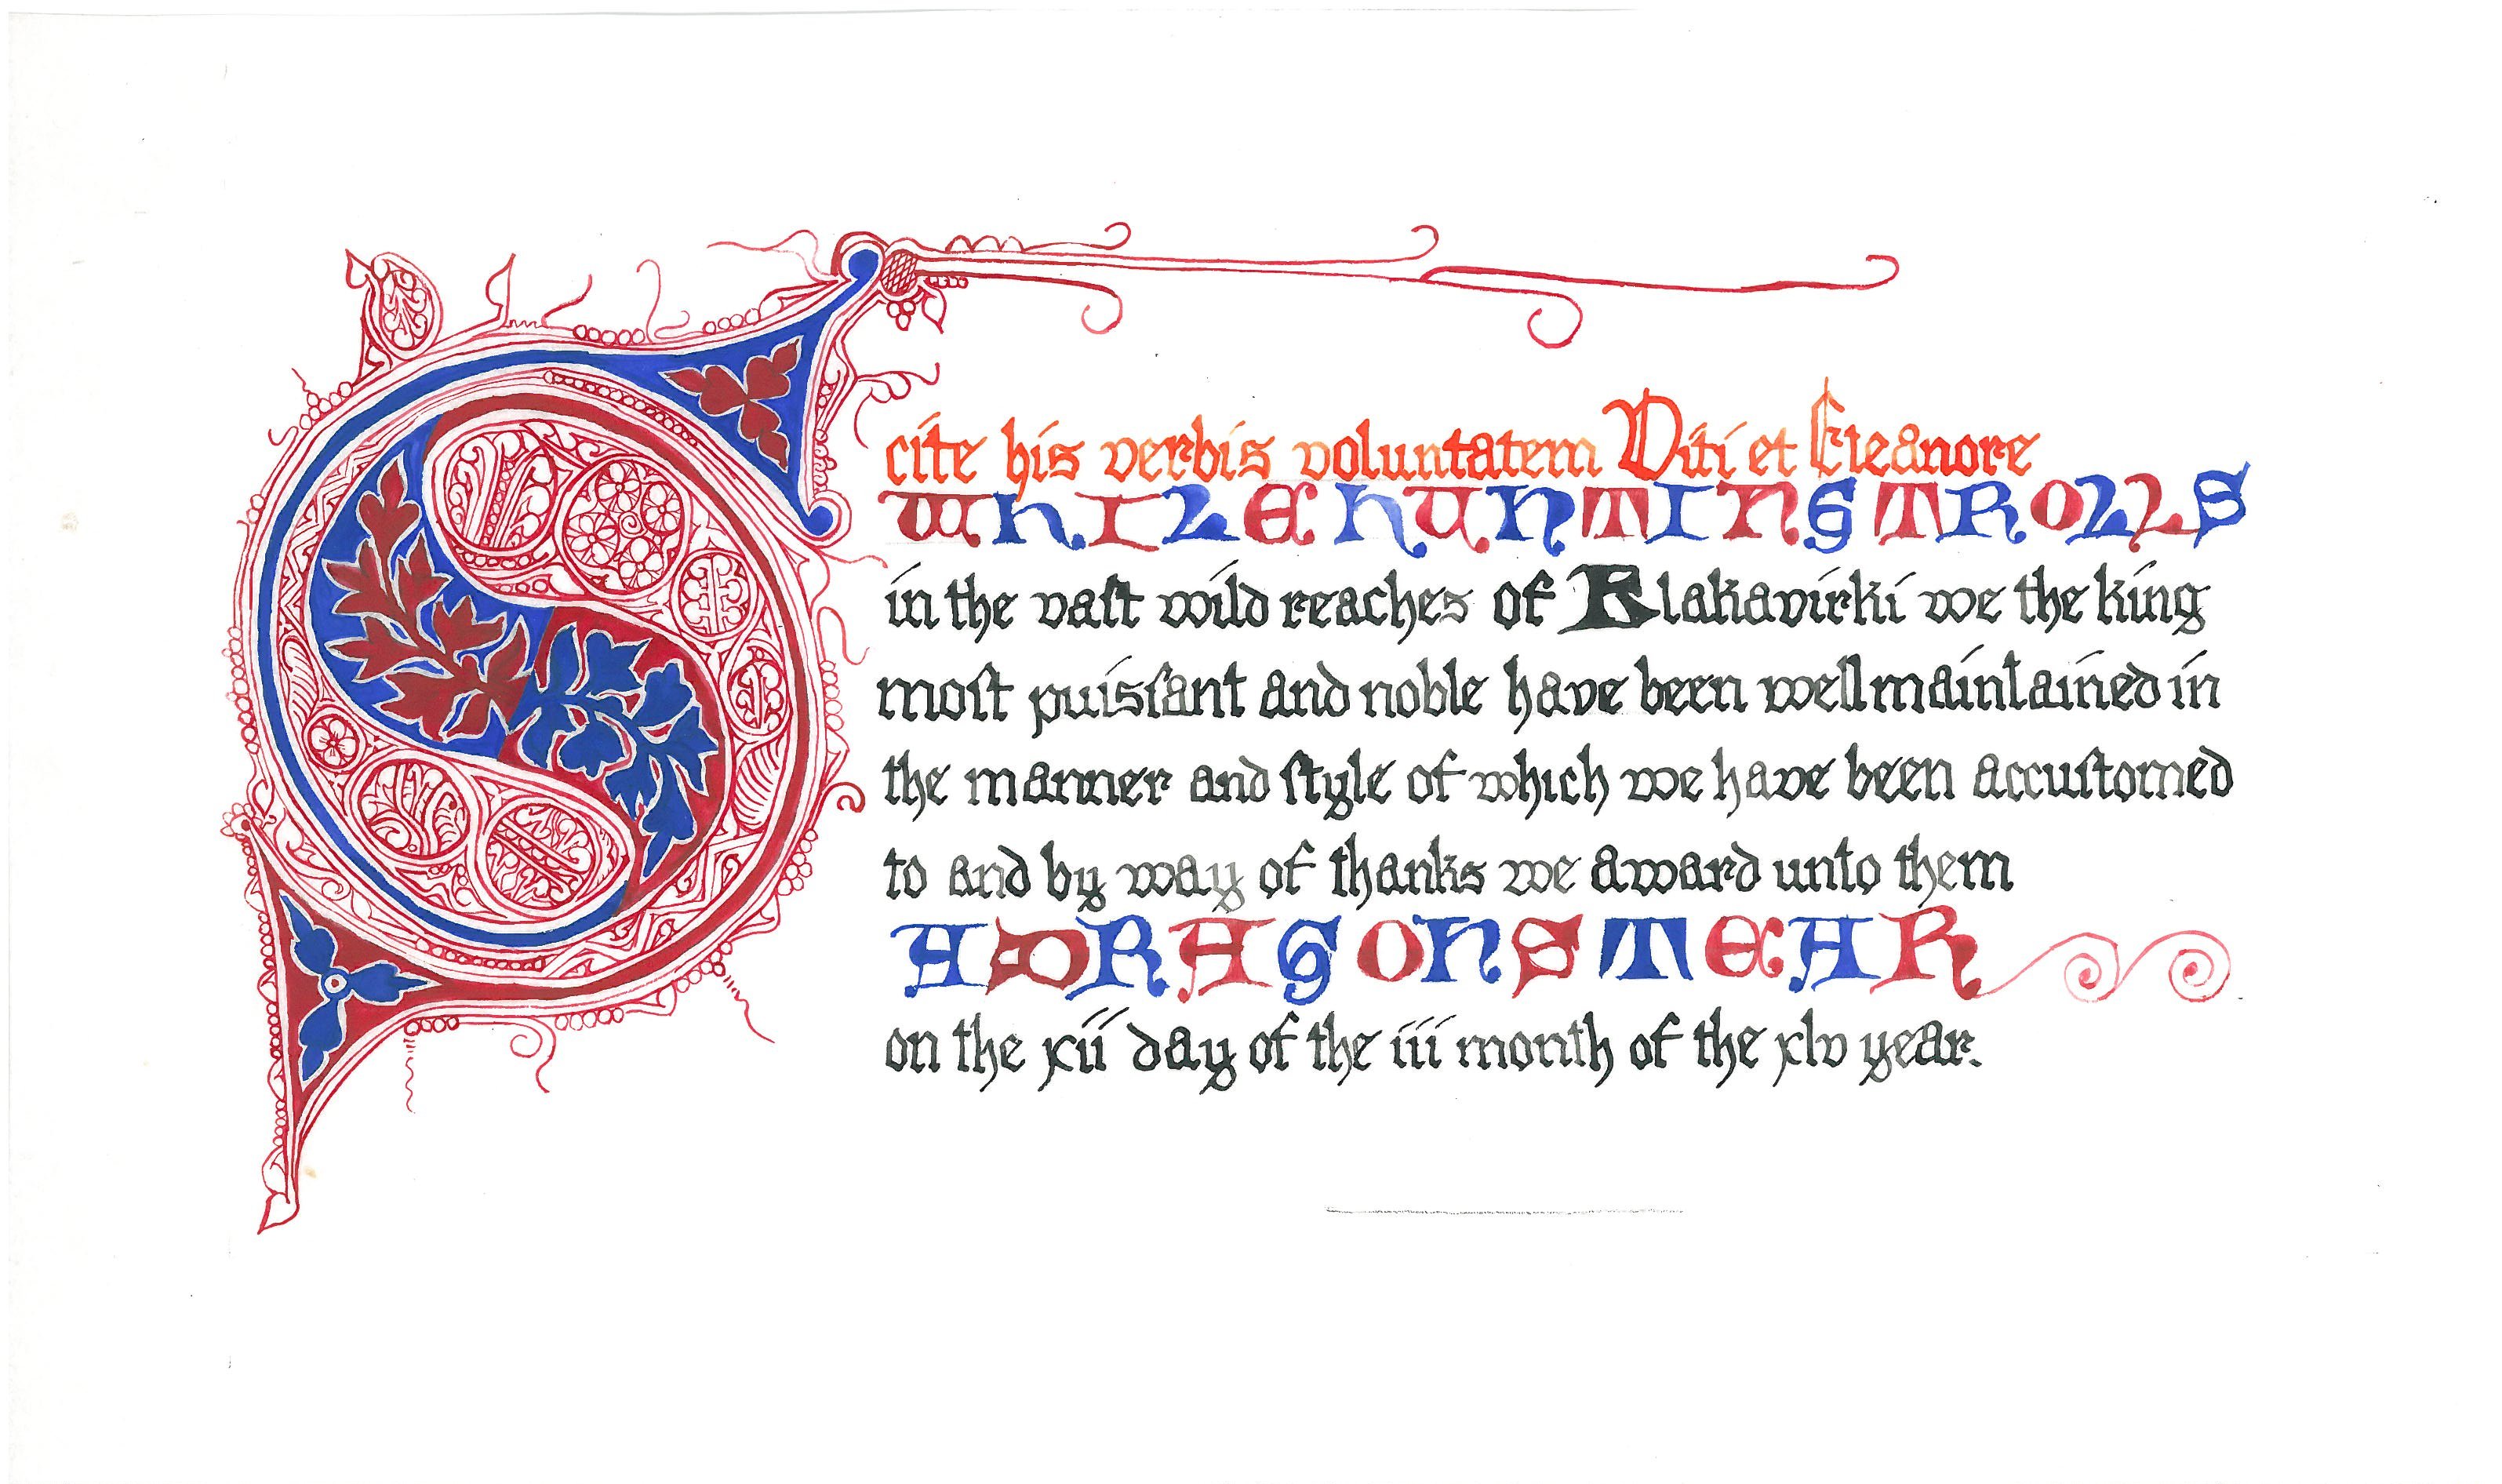 Scite his verbis voluntatem Viti et Eleanore
WHILE HUNTING TROLLS
in the vaſt wild reaches of Klakavirki we the king
moſt puisſant and noble have been well maintained in
the manner and ſtyle of which we have been accuſtomed
to and by way of thanks we award unto them
A DRAGONS TEAR
on the xii day of the iii month of the xlv year.